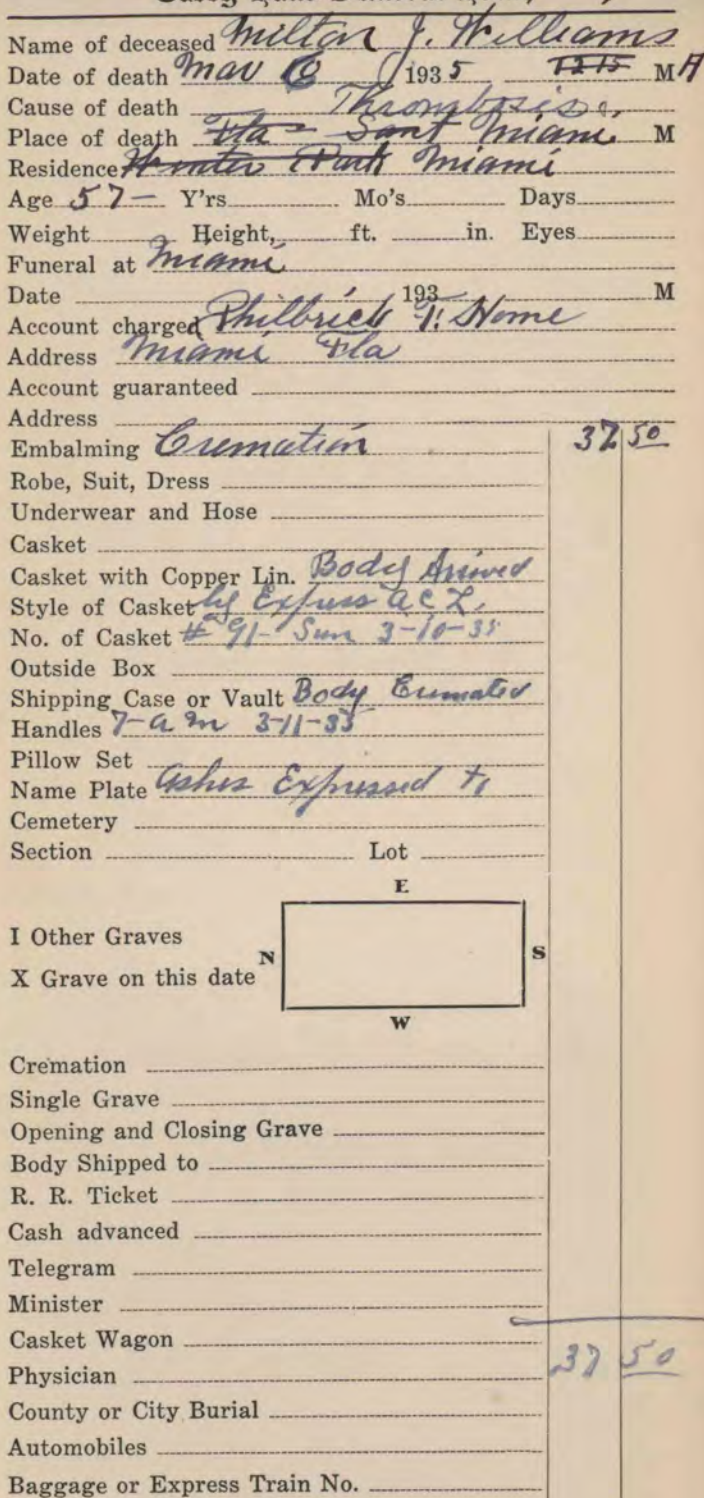 Name of deceased Milton J. Williams
Date of death Mar 6 1935 12 15 M
Cause of death Thrombosis
Place of death Fla Miami M
Residence Winter Park Miami
Age 57 - Y'rs Mo's Days
Weight Height, ft. in. Eyes
Funeral at Miami
Date 193 M
Account charged Philbrick F. Home
Address Miami Fla
Account guaranteed
Address
Embalming Cremation 37 50
Robe, Suit, Dress
Underwear and Hose
Casket
Casket with Copper Lin. Body Arrived
Style of Casket by Express A C L
No. of Casket # 91 - Sun 3-10-35
Outside Box
Shipping Case or Vault Body Cremated
Handles 7- a m 3-11-35
Pillow Set
Name Plate Ashes Expressed to
Cemetery
Section Lot
E
I Other Graves
N S
X Grave on this date
W
Cremation
Single Grave
Opening and Closing Grave
Body Shipped to
R. R. Ticket
Cash advanced
Telegram
Minister
Casket Wagon
37 50
Physician
County or City Burial
Automobiles
Baggage or Express Train No.